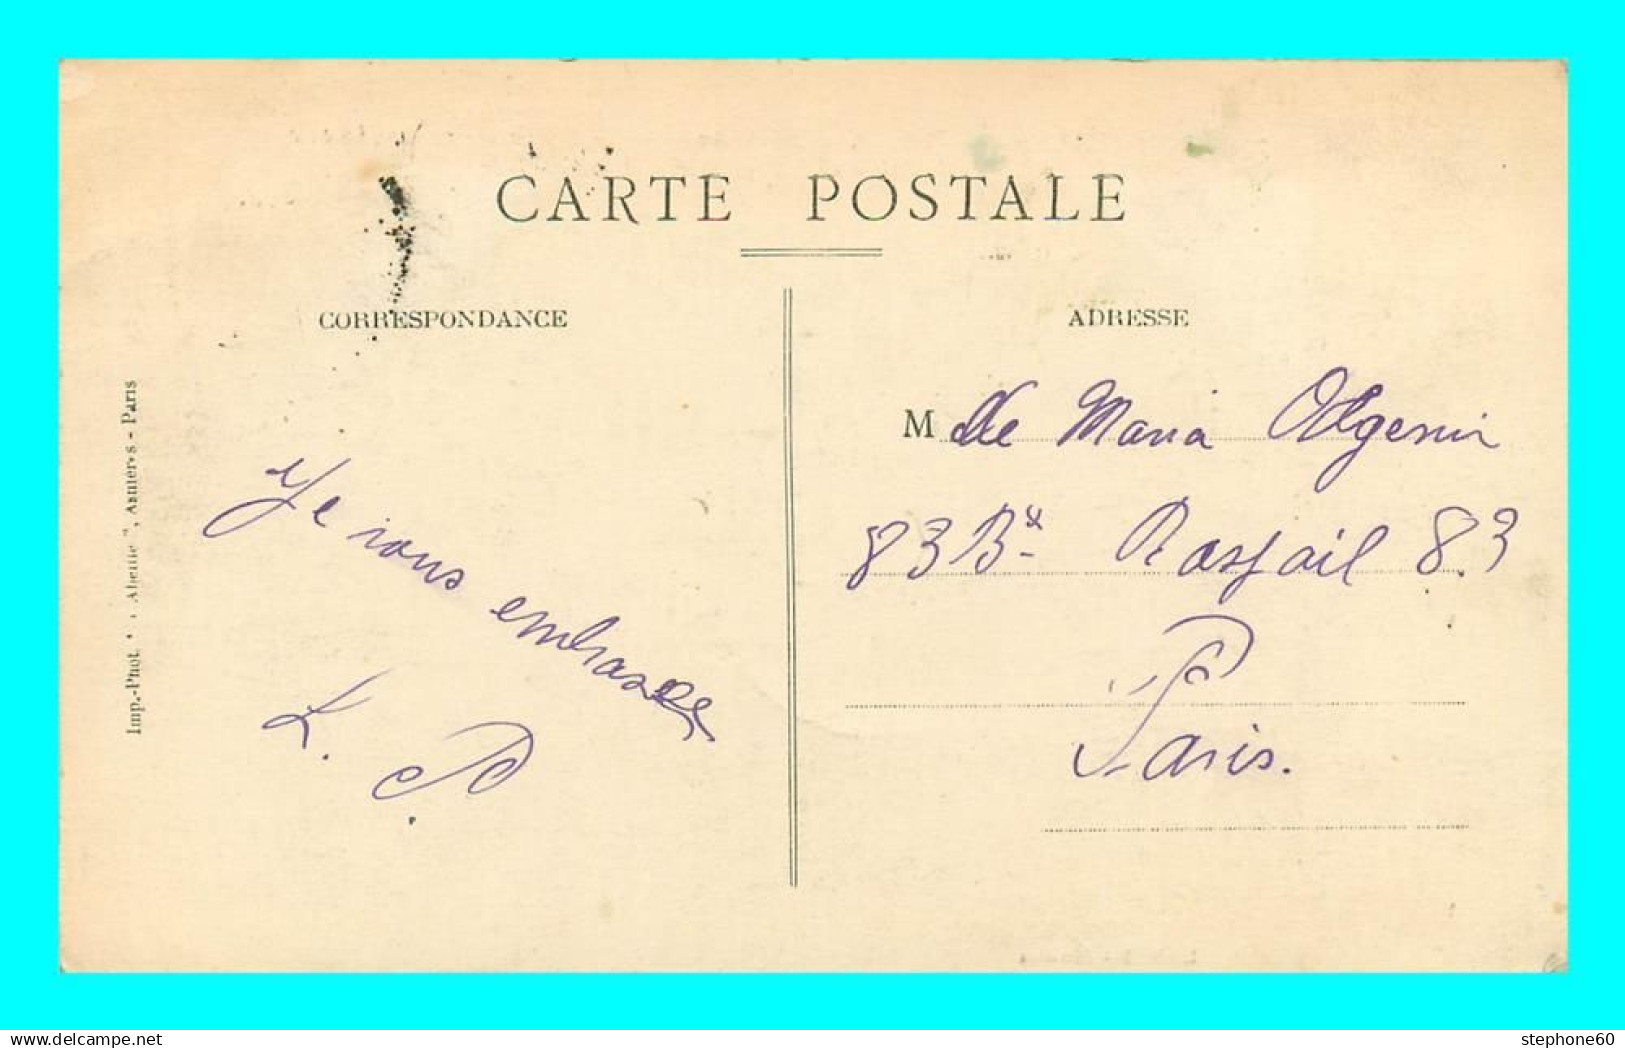 CARTE POSTALE
CORRESPONDANCE
ADRESSE
Je vous embrasse
L. P.
Mlle Maria
83 Bd Raspail 83
Paris.
Imp.-Phot. Abeille", Asnières - Paris
stephone60